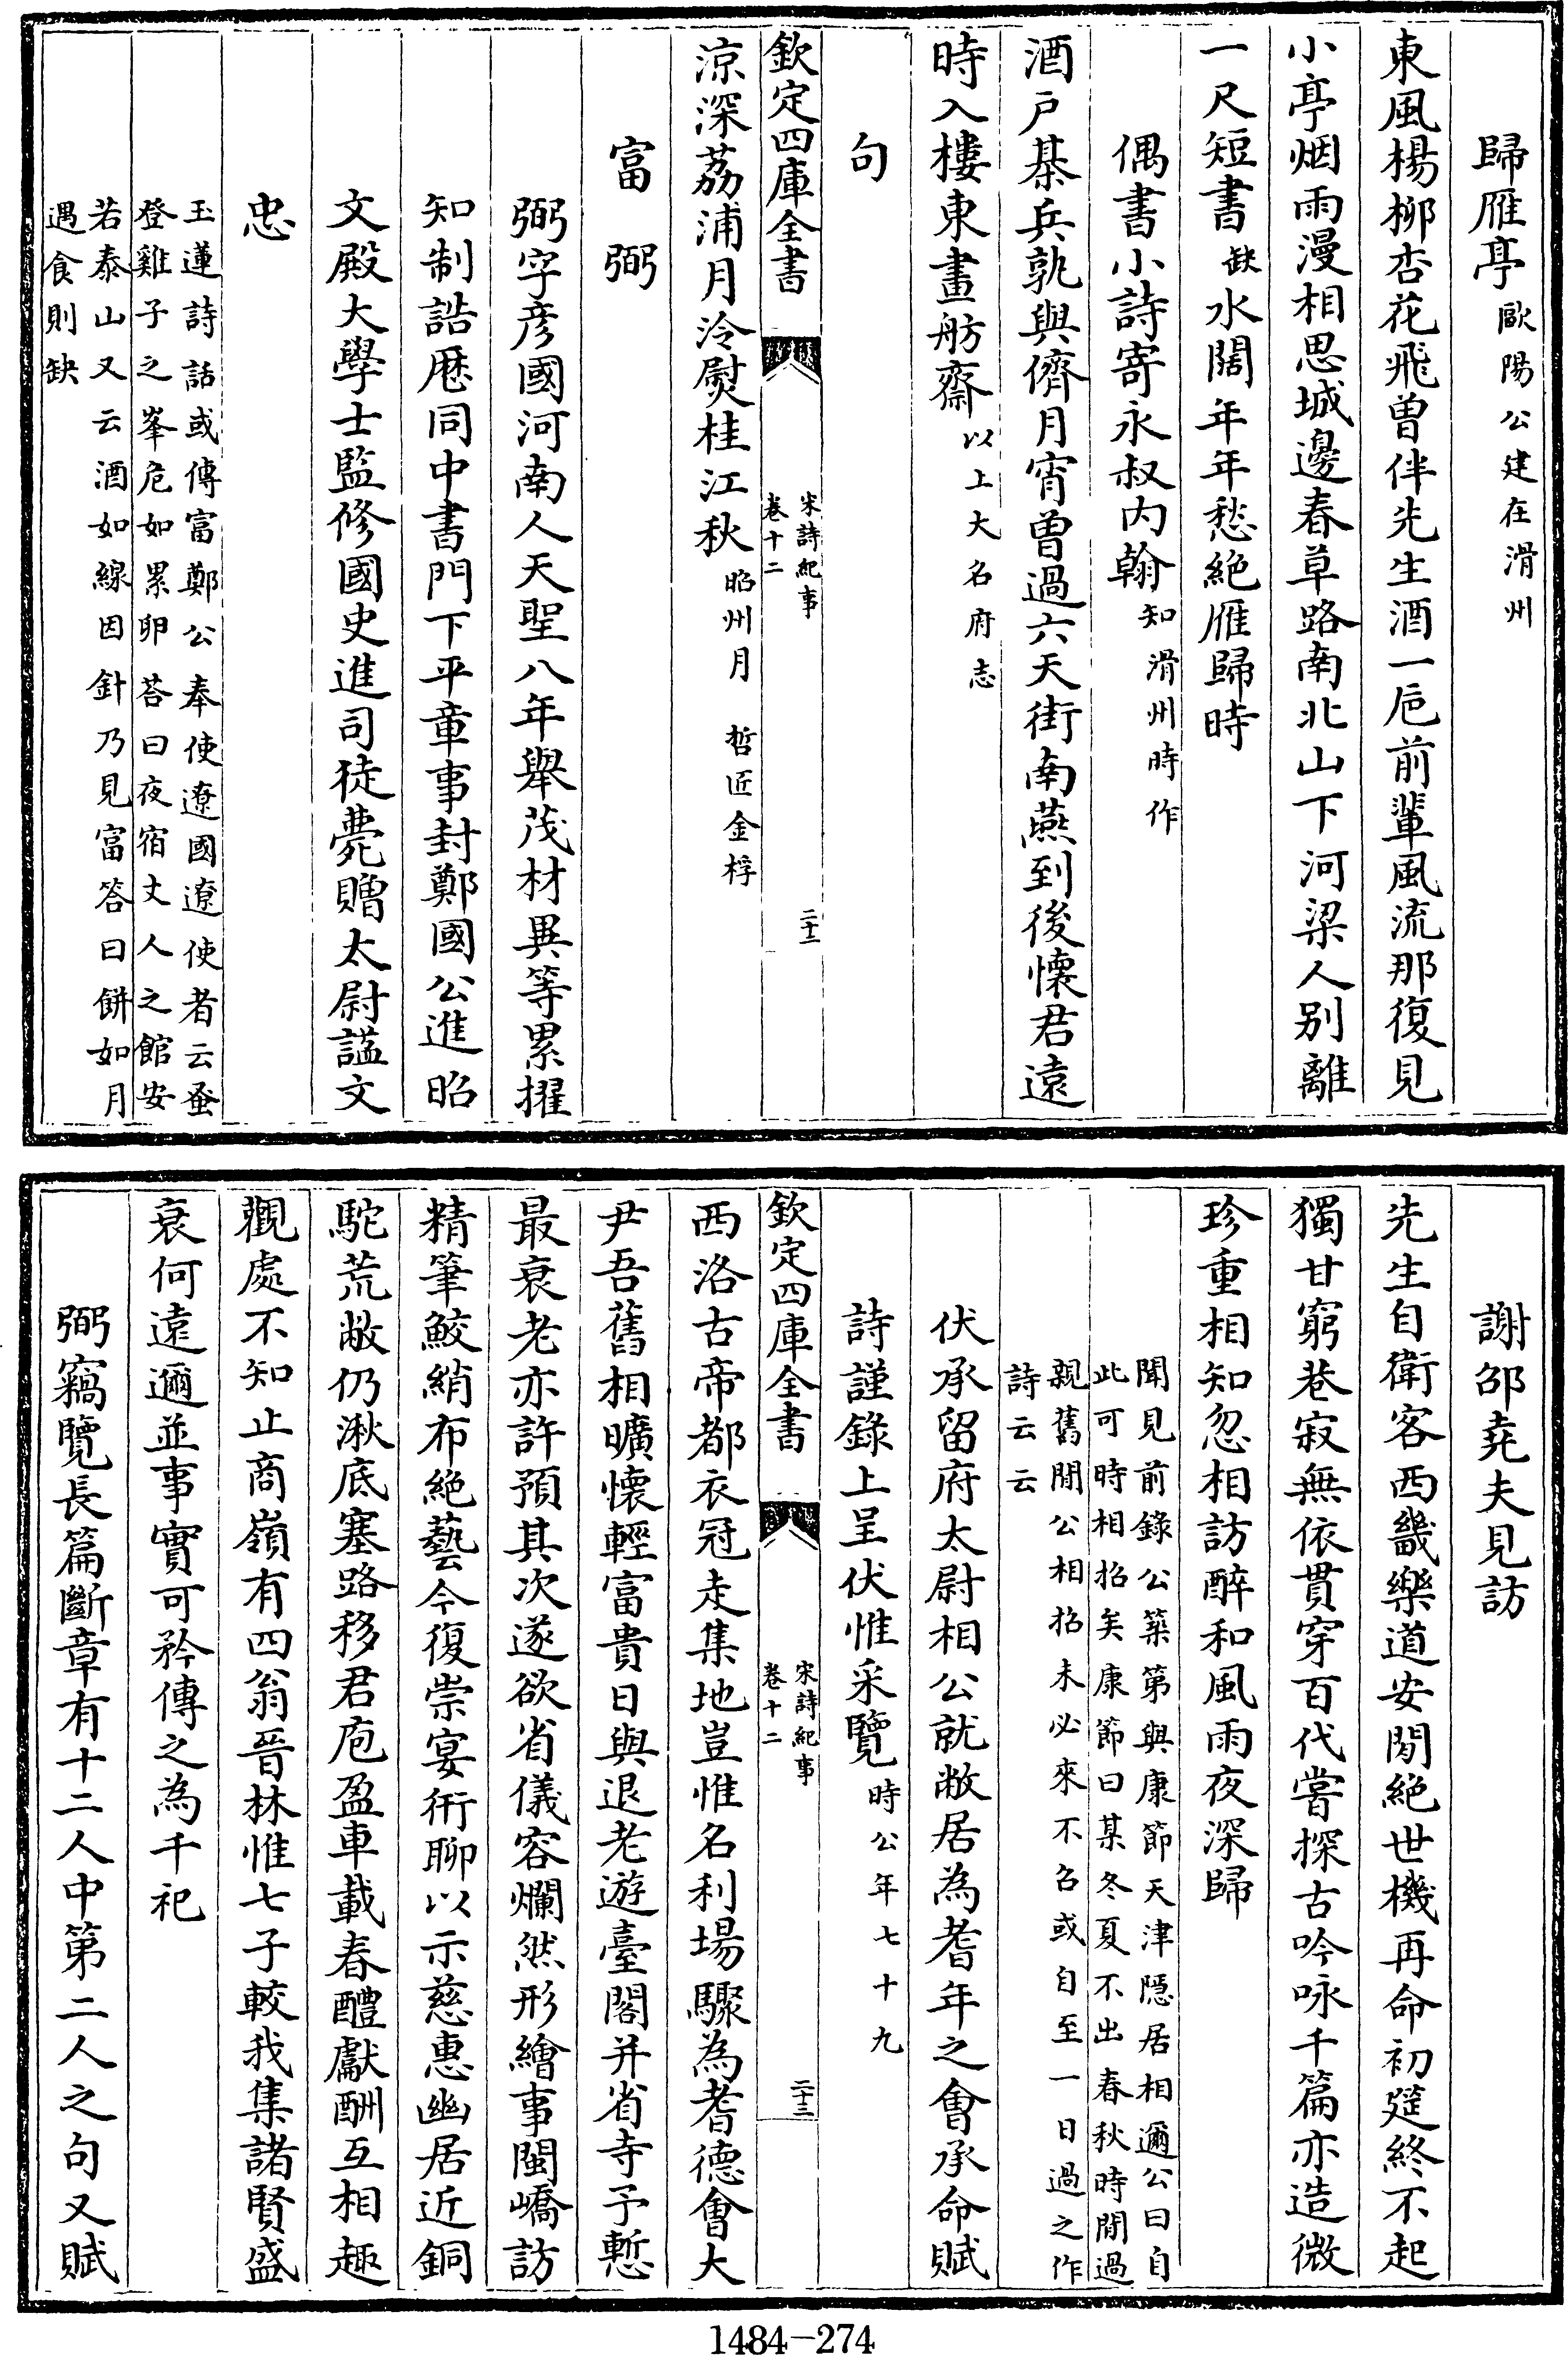 歸雁亭歐陽公建在滑州
東風楊柳杏花飛曽伴先生酒一巵前輩風流那復見
小亭烟雨漫相思城邊春草路南北山下河梁人别離
一尺短書缺水闊年年愁絶雁歸時
偶書小詩寄永叔内翰知滑州時作
酒戶棊兵孰與儕月宵曽過六天街南燕到後懐君逺
時入樓東畫舫齋以上大名府志
句
欽定四庫全書
宋詩紀事
卷十二
二十二
涼深荔浦月冷熨桂江秋昭州月 哲匠金桴
富弼
弼字彦國河南人天聖八年舉茂材異等累擢
知制誥厯同中書門下平章事封鄭國公進昭
文殿大學士監修國史進司徒薨贈太尉諡文
忠
玉蓮詩話或傳富鄭公奉使遼國遼使者云蚤
登雞子之峯危如累卵荅曰夜宿丈人之館安
若泰山又云酒如線因針乃見富答曰餅如月
遇食則缺
謝邵堯夫見訪
先生自衛客西畿樂道安閒絶世機再命初筵終不起
獨甘窮巷寂無依貫穿百代嘗探古吟咏千篇亦造微
珍重相知忽相訪醉和風雨夜深歸
聞見前錄公築第與康節天津隠居相邇公曰自
此可時相招矣康節曰某冬夏不出春秋時間過
親舊間公相招未必來不召或自至一日過之作
詩云云
伏承留府太尉相公就敝居為耆年之會承命賦
詩謹錄上呈伏惟采覽時公年七十九
欽定四庫全書
宋詩紀事
卷十二
二十三
西洛古帝都衣冠走集地豈惟名利場驟為耆德會大
尹吾舊相曠懐輕富貴日與退老遊臺閣并省寺予慙
最衰老亦許預其次遂欲省儀容爛然形繪事閩嶠訪
精筆鮫綃布絶藝今復崇宴衎聊以示慈惠幽居近銅
駝荒敝仍湫底塞路移君庖盈車載春醴獻酬互相趣
觀處不知止商嶺有四翁晉林惟七子較我集諸賢盛
衰何逺邇並事實可矜傳之為千祀
弼竊覽長篇斷章有十二人中第二人之句又賦
1484-274